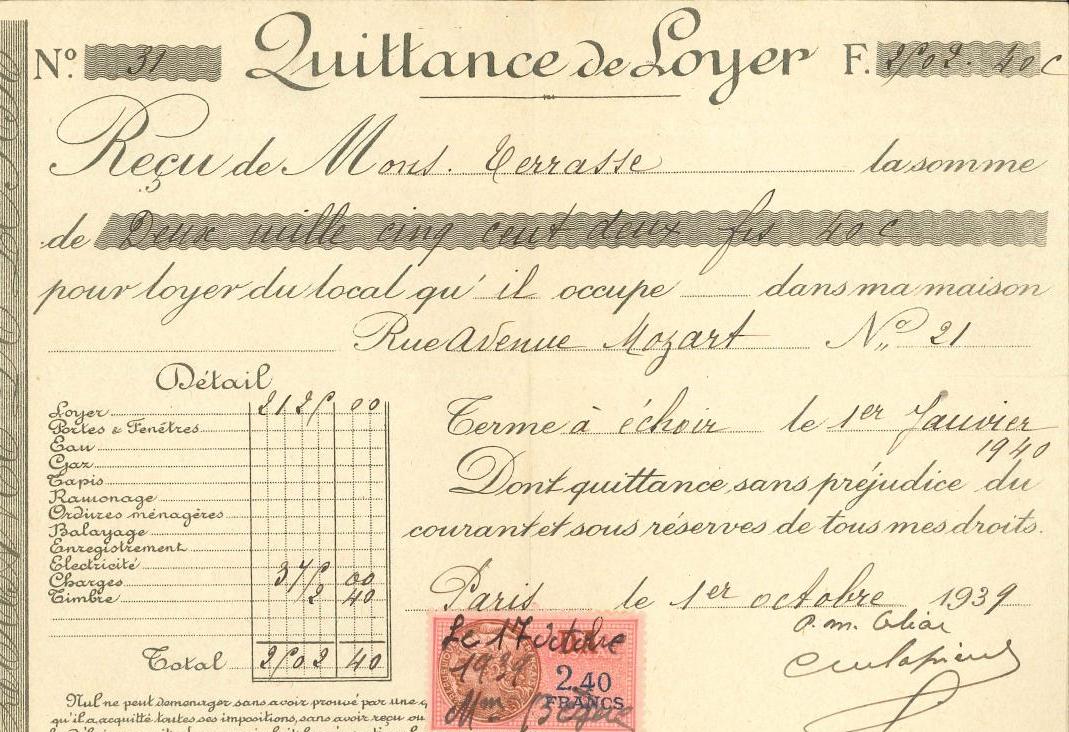 No. 31 Quittance de Loyer F. 2502. 40 c
Reçu de Mons. Terrasse la somme
de Deux mille cinq cent deux frs 40 c
pour loyer du local qu'il occupe dans ma maison
Rue Avenue Mozart No 21
Détail
Loyer 2125 00
Portes & Fenêtres
Eau
Gaz
Tapis
Ramonage
Ordures ménagères
Balayage
Enregistrement
Electricité
Charges 375 00
Timbre 2 40
Total 2502 40
Terme à échoir le 1er Janvier
1940
Dont quittance, sans préjudice du
courant et sous réserves de tous mes droits.
Paris le 1er octobre 1939
Le 17 octobre
1939
2,40
FRANCS
Nul ne peut demenager sans avoir prouvé par une q
qu'il a acquitté toutes ses impositions, sans avoir reçu ou